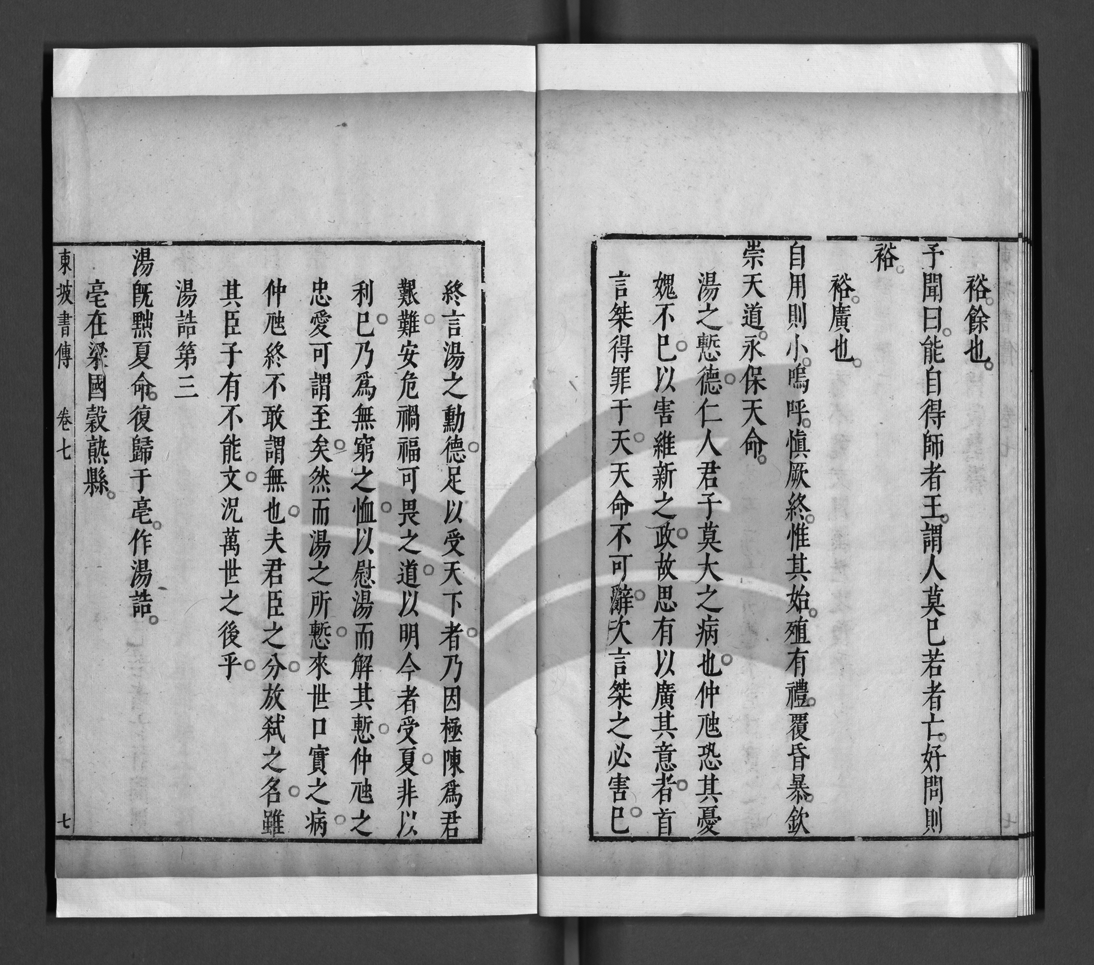 裕餘也。
予聞曰。能自得師者王。謂人莫己若者亡。好問則
裕。
裕廣也。
自用則小。嗚呼。愼厥終。惟其始。殖有禮。覆昏暴。欽
崇天道。永保天命。
湯之慙德。仁人君子莫大之病也。仲虺恐其憂
媿不已。以害維新之政。故思有以廣其意者。首
言桀得罪于天。天命不可辭。次言桀之必害己。
終言湯之勳德。足以受天下者。乃因極陳爲君
艱難。安危禍福可畏之道。以明今者受夏。非以
利己。乃爲無窮之恤。以慰湯而解其慙。仲虺之
忠愛可謂至矣。然而湯之所慙。來世口實之病。
仲虺終不敢謂無也。夫君臣之分。放弒之名。雖
其臣子有不能文。况萬世之後乎。
湯誥第三
湯旣黜夏命。復歸于亳。作湯誥。
亳在梁國穀熟縣。
東坡書傳 卷七 七